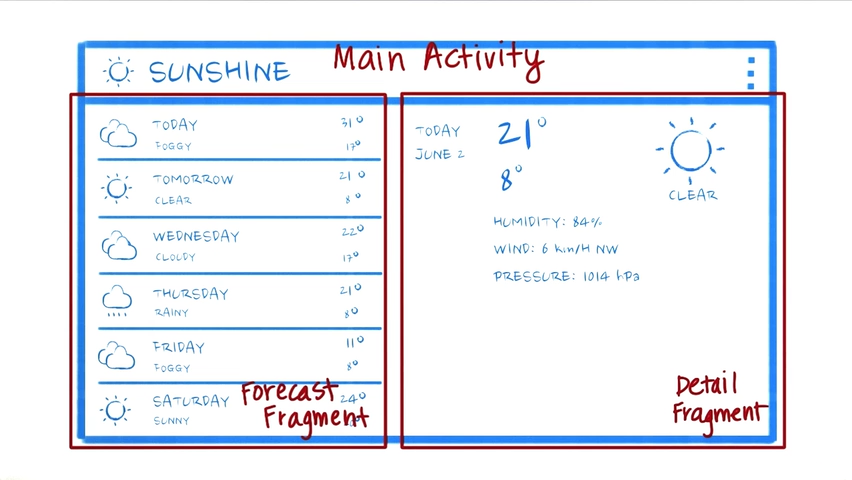 Main Activity
SUNSHINE
TODAY 31°
FOGGY 17°
TOMORROW 21°
CLEAR 8°
WEDNESDAY 22°
CLOUDY 17°
THURSDAY 21°
RAINY 8°
FRIDAY 11°
FOGGY 8°
SATURDAY 24°
SUNNY
Forecast
Fragment
TODAY
JUNE 2
21°
8°
CLEAR
HUMIDITY: 84%
WIND: 6 km/H NW
PRESSURE: 1014 hPa
Detail
Fragment